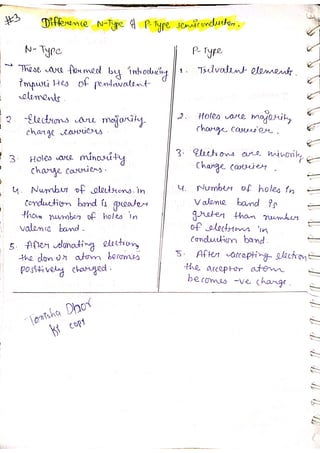 #3 Difference N-Type & P-Type semiconductor.
N-Type
→ These are formed by introducing
impurities of pentavalent
elements.
2. Electrons are majority
charge carriers.
3. Holes are minority
charge carriers.
4. Number of electrons in
conduction band is greater
than number of holes in
valence band.
5. After donating electron,
the donor atom becomes
positively charged.
P-Type
1. Trivalent elements.
2. Holes are majority
charge carrier.
3. Electrons are minority
charge carrier.
4. Number of holes in
Valence band is
greter than number
of electrons in
conduction band.
5. After accepting electron
the acceptor atom
becomes -ve charge.
copy